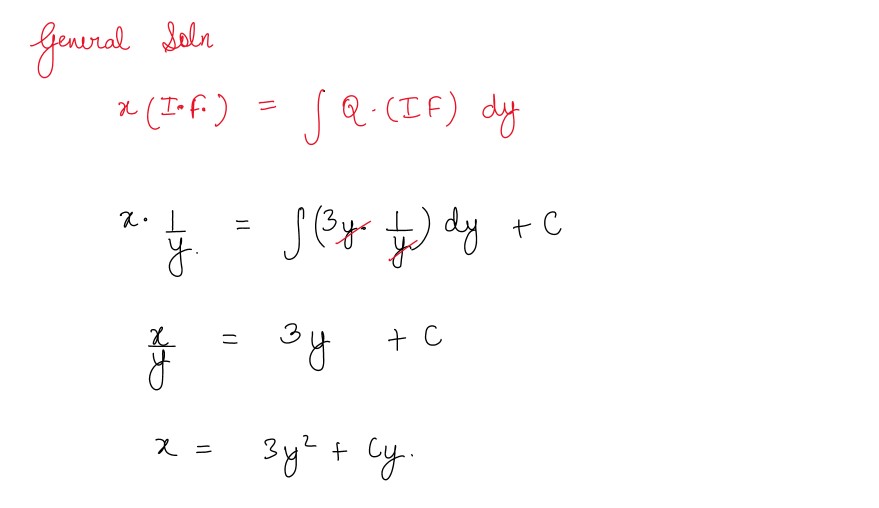 General Soln
x (I.F.) = ∫ Q . (IF) dy
x . 1/y . = ∫ (3y . 1/y) dy + C
x/y = 3y + C
x = 3y² + Cy.